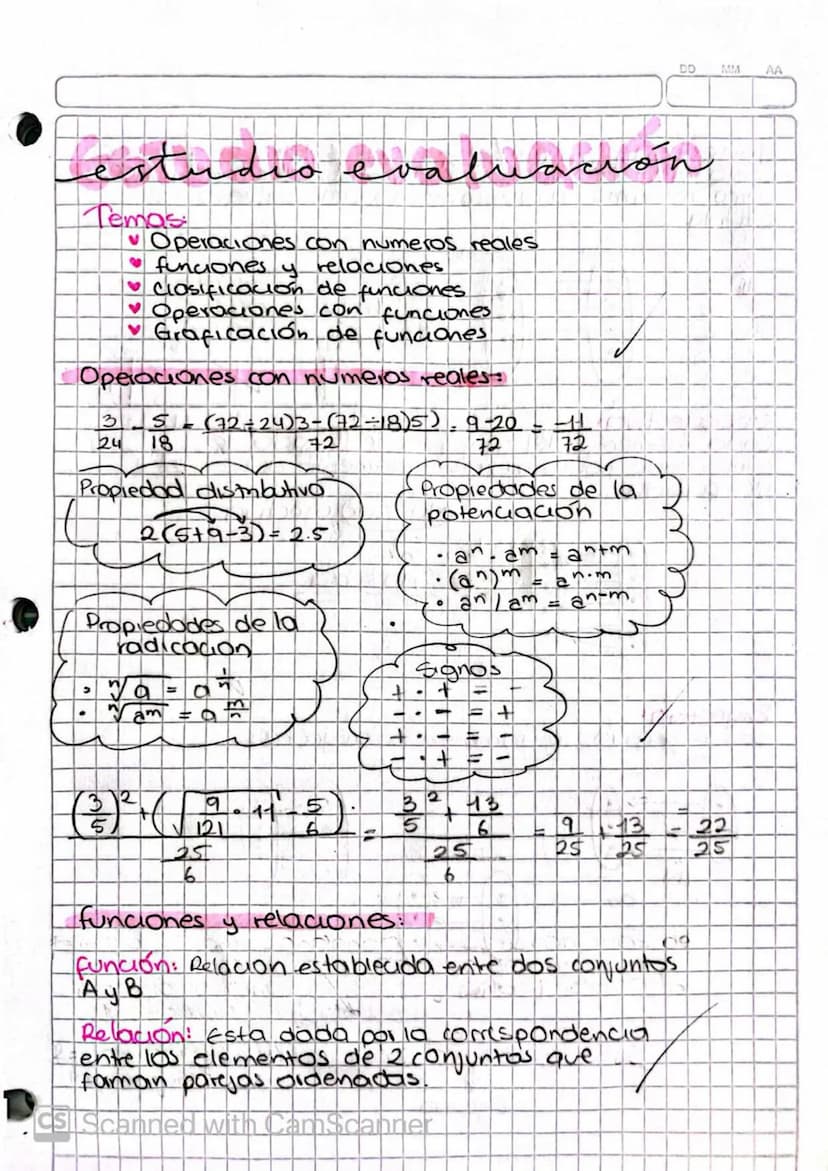 DD MM AA
estudio evaluación
Temas:
♥ Operaciones con numeros reales
♥ funciones y relaciones
♥ clasificación de funciones
♥ Operaciones con funciones
♥ Graficación de funciones
Operaciones con numeros reales:
3/24 - 5/18 = (72÷24)3-(72÷18)5)/72 = 9-20/72 = -11/72
Propiedad distributivo
2(5+9-3)= 2.5
Propiedades de la
potenciación
· aⁿ · aᵐ = aⁿ⁺ᵐ
· (aⁿ)ᵐ = aⁿ·ᵐ
· aⁿ / aᵐ = aⁿ⁻ᵐ
Propiedades de la
radicacion
· ⁿ√a = a^(1/n)
· ⁿ√aᵐ = a^(m/n)
Signos
+ · + = -
- · - = +
+ · - = -
- · + = -
((3/5)² + (√(9/121) · 11 - 5/6))/(25/6) = (3/5² + 13/6)/(25/6) = 9/25 + 13/25 = 22/25
funciones y relaciones:
función: Relacion establecida entre dos conjuntos
A y B
Relación: Esta dada por la correspondencia
entre los elementos de 2 conjuntos que
forman parejas ordenadas.
CS Scanned with CamScanner